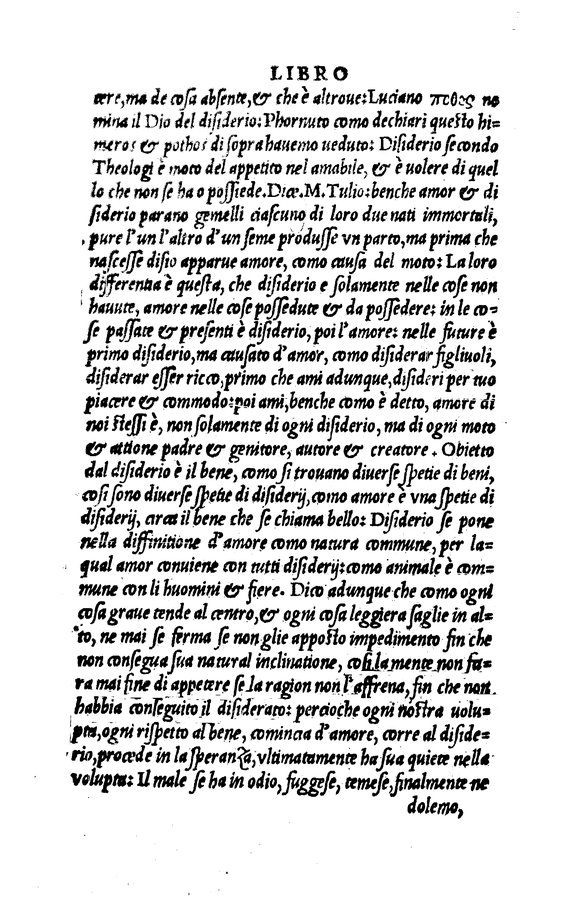 LIBRO
tere,ma de cosa absente,& che è altroue:Luciano ποθος no
mina il Dio del disiderio:Phornuto como dechiari questo hi=
meros & pothos di sopra hauemo ueduto: Disiderio secondo
Theologi è moto del appetito nel amabile, & è uolere di quel
lo che non se ha o possiede.Dice.M.Tulio:benche amor & di
siderio parano gemelli ciascuno di loro due nati immortali,
pure l'un l'altro d'un seme produsse vn parto,ma prima che
nascesse disio apparue amore, como causa del moto: La loro
differentia è questa, che disiderio e solamente nelle cose non
hauute, amore nelle cose possedute & da possedere: in le co=
se passate & presenti è disiderio, poi l'amore: nelle future è
primo disiderio,ma causato d'amor, como disiderar figliuoli,
disiderar esser ricco,primo che ami adunque,disideri per tuo
piacere & commodo:poi ami,benche como è detto, amore di
noi stessi è, non solamente di ogni disiderio, ma di ogni moto
& attione padre & genitore, autore & creatore. Obietto
dal disiderio è il bene, como si trouano diuerse spetie di beni,
cosi sono diuerse spetie di disiderij,como amore è vna spetie di
disiderij, circa il bene che se chiama bello: Disiderio se pone
nella diffinitione d'amore como natura commune, per la=
qual amor conuiene con tutti disiderij:como animale è com=
mune con li huomini & fiere. Dico adunque che como ogni
cosa graue tende al centro,& ogni cosa leggiera saglie in al=
to, ne mai se ferma se non glie apposto impedimento fin che
non consegua sua natural inclinatione, cosi la mente non fa=
ra mai fine di appetere se la ragion non l'affrena, fin che non
habbia conseguito il disiderato: percioche ogni nostra uolu=
pta,ogni rispetto al bene, comincia d'amore, corre al diside=
rio,procede in la speranza,vltimatamente ha sua quiete nella
volupta: Il male se ha in odio, fuggese, temese,finalmente ne
dolemo,